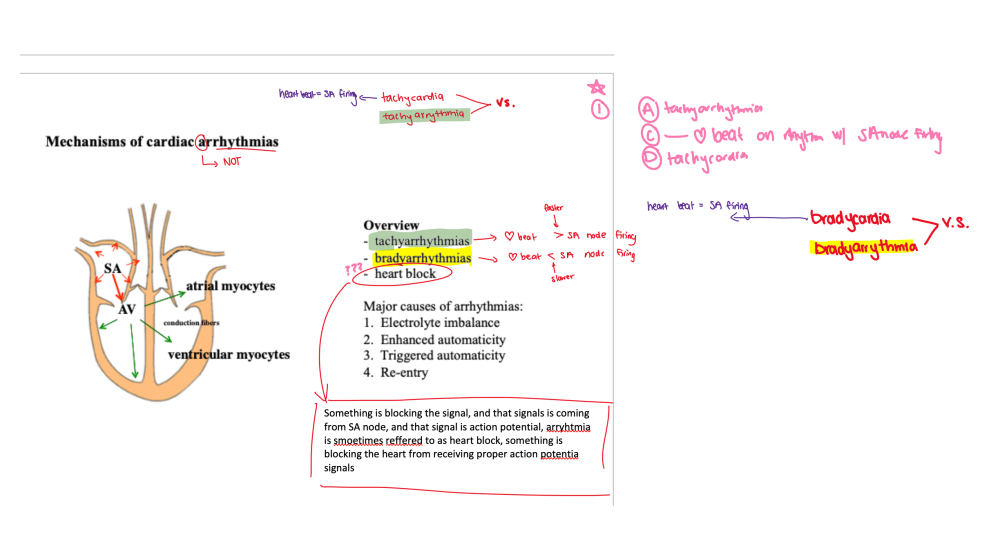 heart beat = SA firing ← tachycardia
tachyarrythmia
vs.
1
Mechanisms of cardiac arrhythmias
↳ NOT
A tachyarrhythmia
C — ♡ beat on rhythm w/ SA node firing
D tachycardia
heart beat = SA firing
bradycardia
bradyarrythmia
V.S.
Overview
faster
- tachyarrhythmias → ♡ beat > SA node firing
- bradyarrhythmias → ♡ beat < SA node firing
??? - heart block
slower
SA
AV
atrial myocytes
conduction fibers
ventricular myocytes
Major causes of arrhythmias:
1. Electrolyte imbalance
2. Enhanced automaticity
3. Triggered automaticity
4. Re-entry
Something is blocking the signal, and that signals is coming
from SA node, and that signal is action potential, arryhtmia
is smoetimes reffered to as heart block, something is
blocking the heart from receiving proper action potentia
signals